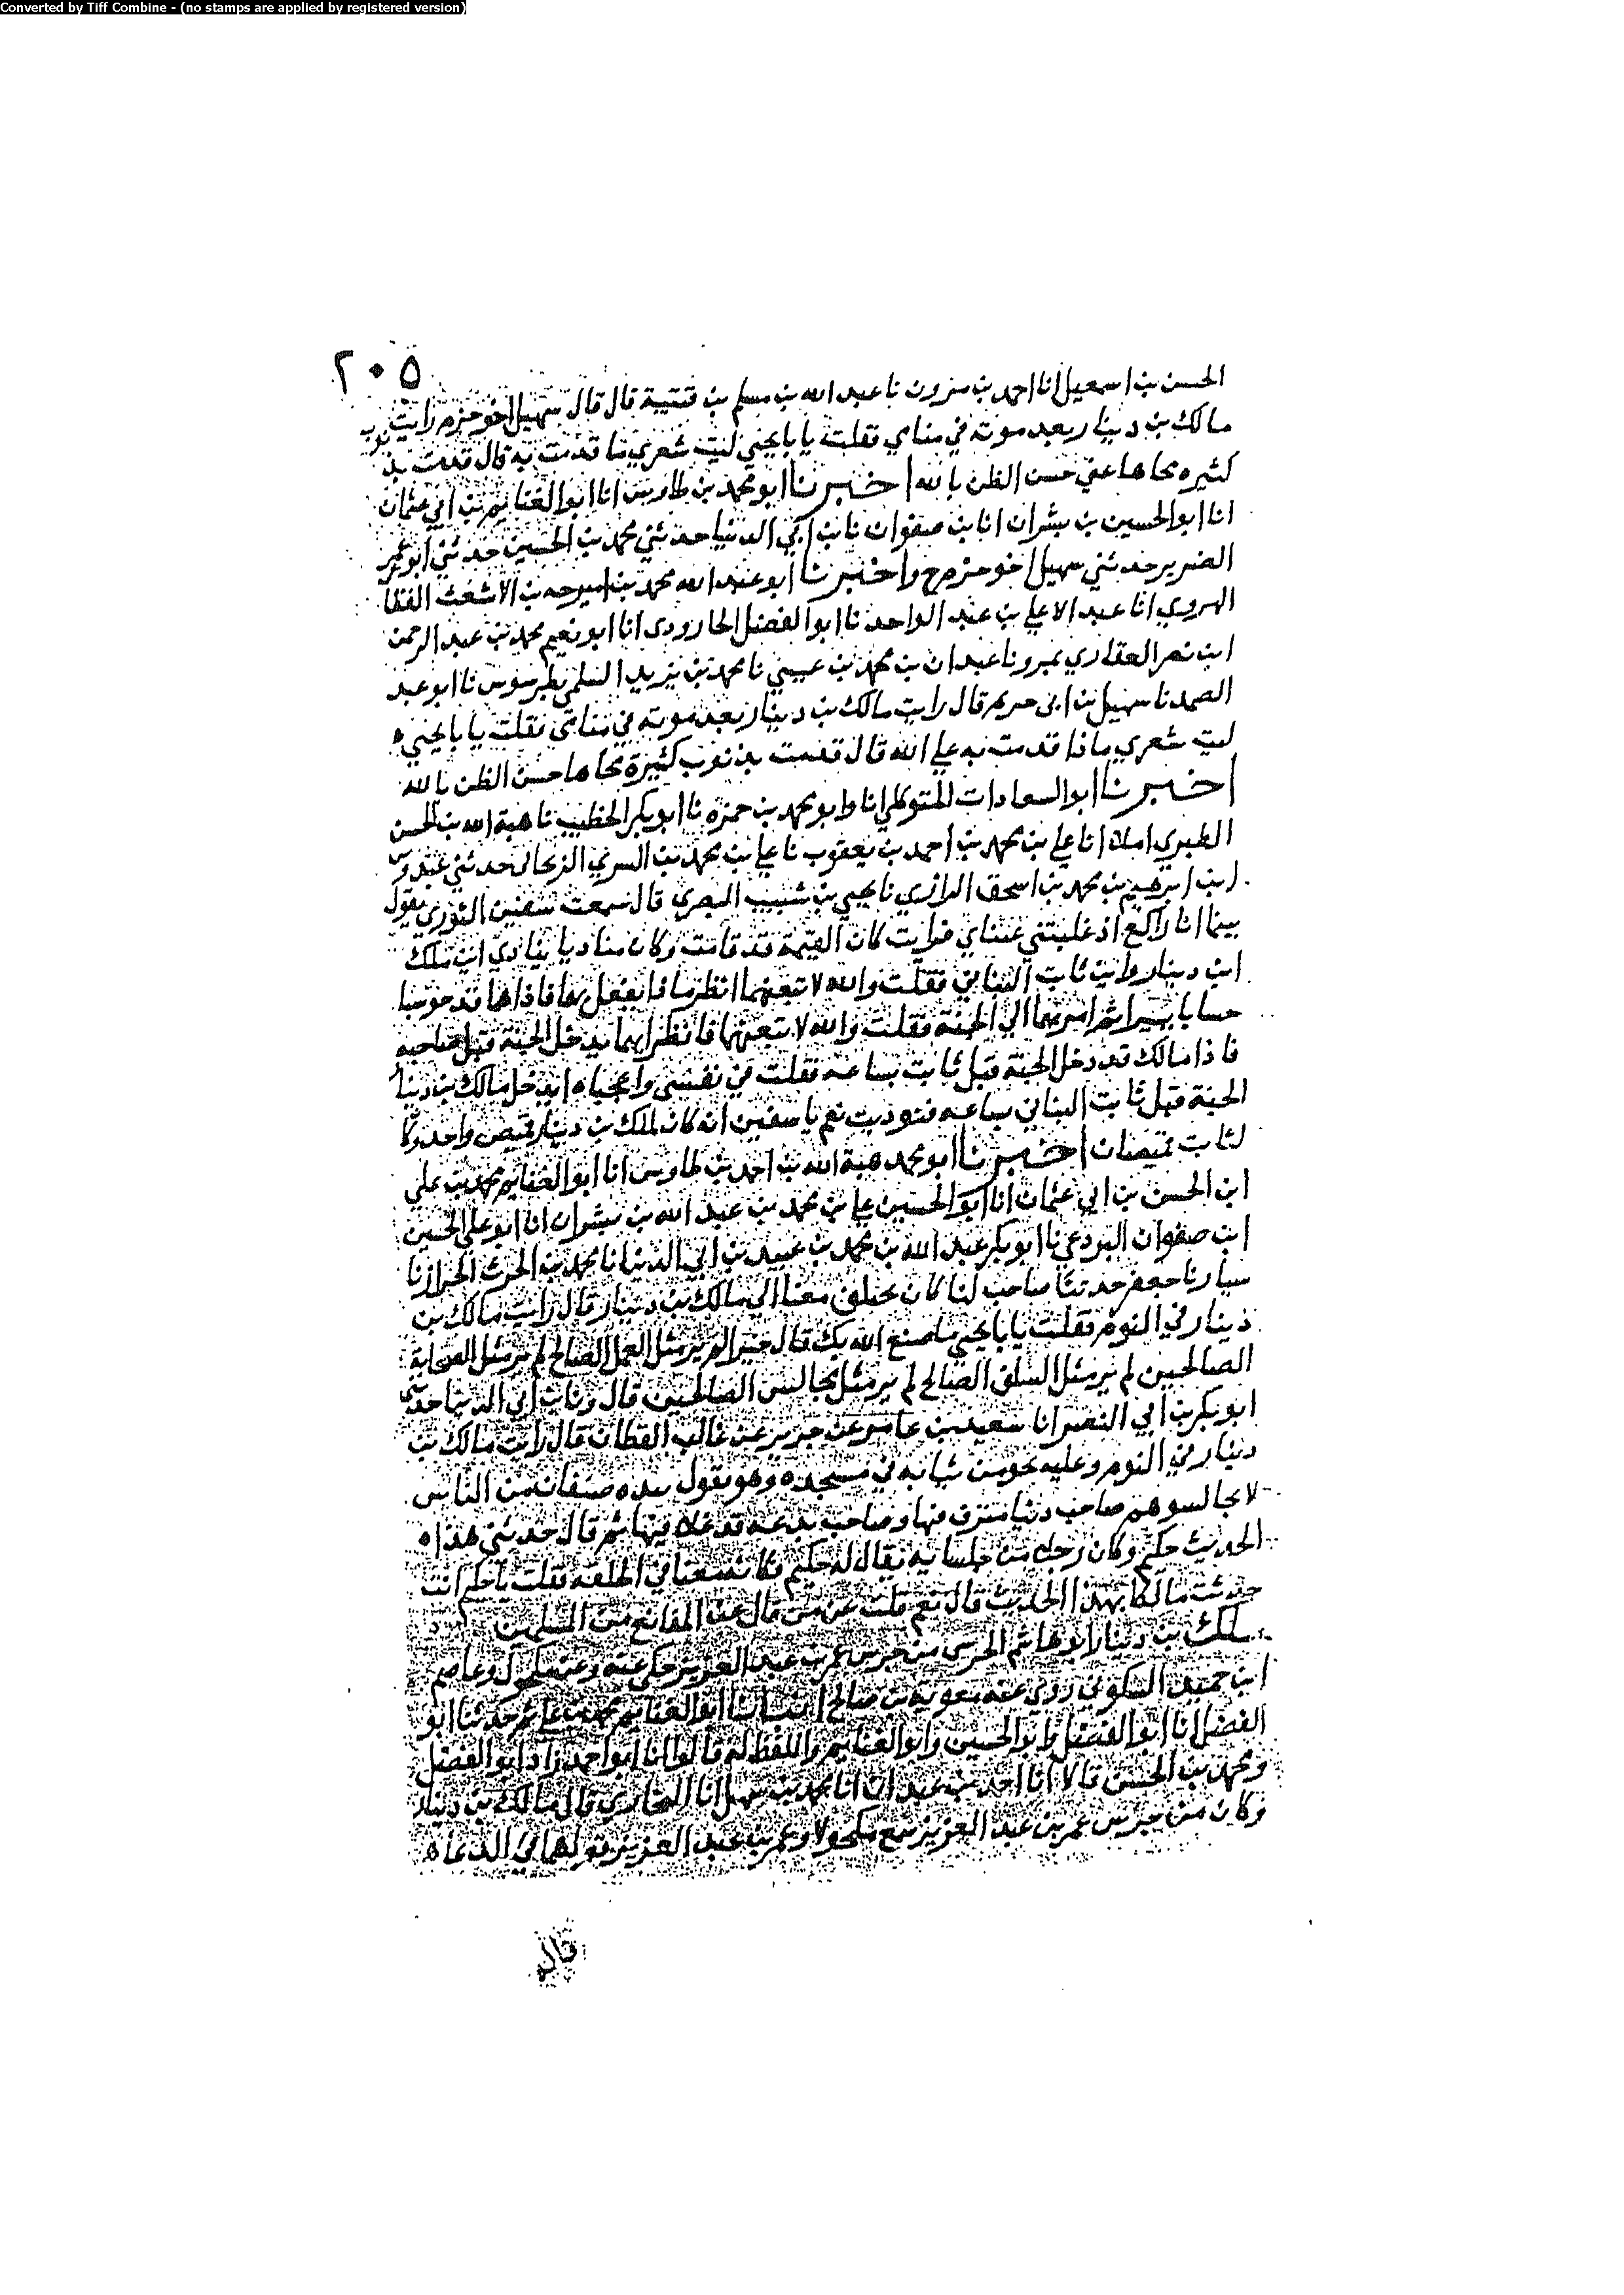 Converted by Tiff Combine - (no stamps are applied by registered version)
٢٠٥
الحسن بن اسمعيل انا احمد بن مروان نا عبد الله بن مسلم بن قتيبة قال قال سهيل اخو حزم رايت
مالك بن دينار بعد موته في منامي فقلت يا با يحيى ليت شعري ما قدمت به قال قدمت بذنوب
كثيره محاها عني حسن الظن بالله اخبرنا ابو محمد بن طاوس انا ابو الغنايم بن ابي عثمان
انا ابو الحسين بن بشران انا بن صفوان نا بن ابي الدنيا حدثني محمد بن الحسين حدثني ابو عمر
الضرير حدثني سهيل اخو حزم ح واخبرنا ابو عبد الله محمد بن بن الاشعث
الهروي انا عبد الاعلى بن عبد الواحد نا ابو الفضل الجارودي انا ابو نعيم محمد بن عبد الرحمن
ابن نصر الغفاري بمرو نا عبدان بن محمد بن عيسى نا محمد بن يزيد السلمي بطرسوس نا ابو عبد
الصمد نا سهيل بن ابي حزم قال رايت مالك بن دينار بعد موته في منامي فقلت يا با يحيى
ليت شعري ماذا قدمت به على الله قال قدمت بذنوب كثيرة محاها حسن الظن بالله
اخبرنا ابو السعادات المتوكلي انا وابو محمد بن حمزه نا ابو بكر الخطيب نا هبة الله بن الحسن
الطبري املاء انا علي بن محمد بن احمد بن يعقوب نا علي بن محمد بن السري حدثني عبدوس
ابن ابرهيم بن محمد بن اسحق الرازي نا يحيى بن شبيب البصري قال سمعت سفين الثوري يقول
بينما انا راكع اذ غلبتني عيناي فرايت كان القيمة قد قامت وكان مناديا ينادي اين ملك
ابن دينار واين ثابت البناني فقلت والله لاتبعنهما انظر ما ذا يفعل بهما فاذا هما قد حوسبا
حسابا يسيرا ثم امر بهما الى الجنة فقلت والله لاتبعنهما فانظر ايهما يدخل الجنة قبل صاحبه
فاذا مالك قد دخل الجنة قبل ثابت بساعة فقلت في نفسي واعجباه ايدخل مالك بن دينار
الجنة قبل ثابت البناني بساعه فنوديت نعم يا سفين انه كان لملك بن دينار قميص واحد وكان
لثابت قميصان اخبرنا ابو محمد هبة الله بن احمد بن طاوس انا ابو الغنايم محمد بن علي
ابن الحسن بن ابي عثمان انا ابو الحسين علي بن محمد بن عبد الله بن بشران انا ابو علي الحسين
ابن صفوان البردعي نا ابو بكر عبد الله بن محمد بن عبيد بن ابي الدنيا نا محمد بن الحرث الخراز نا
سيار نا جعفر حدثنا صاحب لنا كان يختلف معنا الى مالك بن دينار قال رايت مالك بن
دينار في النوم فقلت يا با يحيى ما صنع الله بك قال خيرا لم ير مثل العمل الصالح لم ير مثل الصحابة
الصالحين لم ير مثل السلف الصالح لم ير مثل مجالس الصالحين قال ونا بن ابي الدنيا حدثني
ابو بكر بن ابي النصر انا سعيد بن عامر عن حزم عن غالب القطان قال رايت مالك بن
دينار في النوم وعليه نحو من ثيابه في مسجده وهو يقول بيده صنفان من الناس
لا تجالسوهم صاحب دنيا مترف فيها وصاحب بدعه قد غلا فيها ثم قال حدثني هذا
الحديث حكيم وكان رجل من جلسايه يقال له حكيم وكان معنا في الحلقه فقلت يا حكيم انت
حدثت مالكا بهذا الحديث قال نعم قلت عن من قال عن المقانع من المسلمين
ملك بن دينار ابو هاشم الحرسي من حرس عمر بن عبد العزيز حكى عنه وعن مكحول وعاصم
ابن حميد السكوني روى عنه معوية بن صالح انبانا ابو الغنايم محمد بن علي ثم حدثنا ابو
الفضل انا ابو الفضل وابو الحسين وابو الغنايم واللفظ له قالوا انا ابو احمد زاد ابو الفضل
ومحمد بن الحسن قالا انا احمد بن عبدان انا محمد بن سهل انا البخاري قال مالك بن دينار
وكان من حرس عمر بن عبد العزيز سمع مكحولا وعمر بن عبد العزيز قولهما في الدعاه
قال